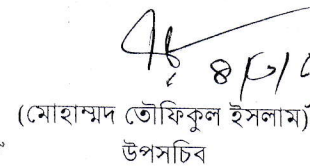 (মোহাম্মদ তৌফিকুল ইসলাম)
উপসচিব